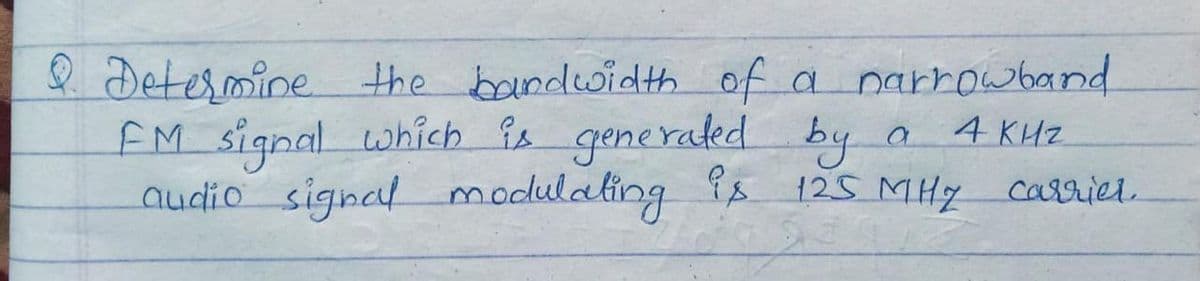 Q. Determine the bandwidth of a narrowband
FM signal which is generated by a 4 KHz
audio signal modulating is 125 MHz carrier.